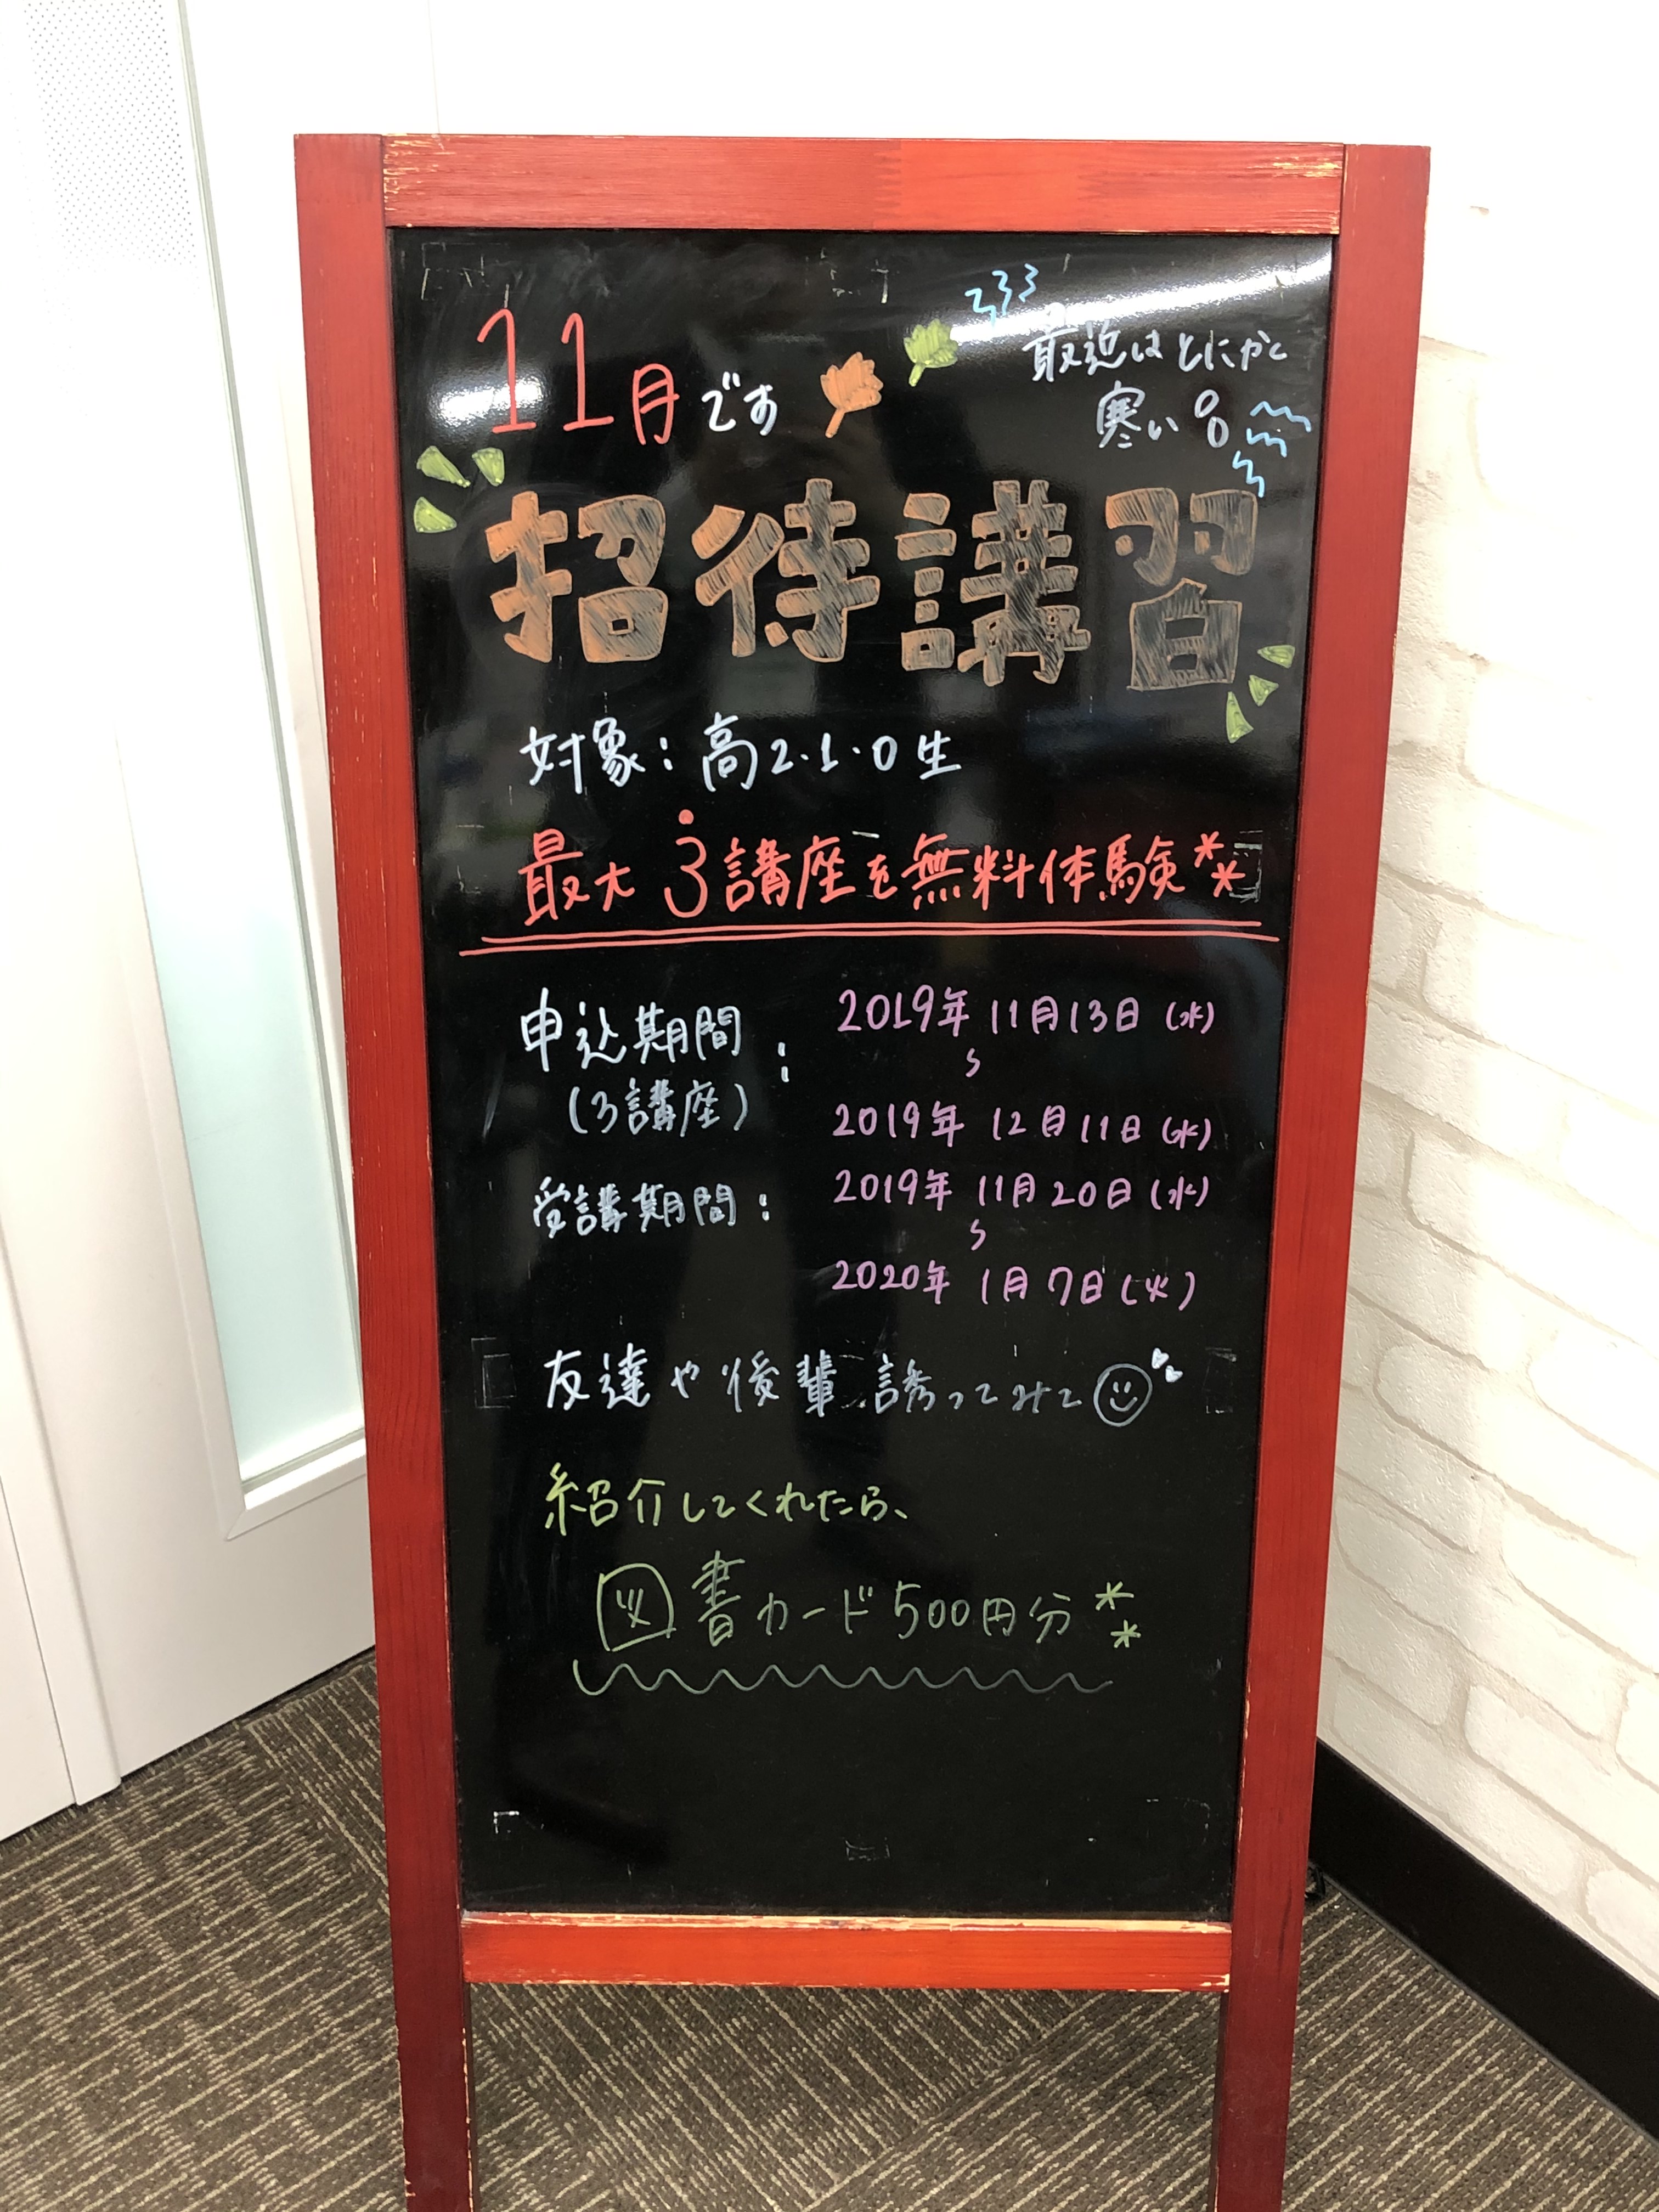 11月です
最近はとにかく
寒い
招待講習
対象：高2・1・0生
最大3講座を無料体験**
申込期間：
(3講座)
2019年 11月13日(水)
～
2019年 12月11日(水)
受講期間：
2019年 11月20日(水)
～
2020年 1月7日(火)
友達や後輩 誘ってみて
紹介してくれたら、
図書カード500円分**